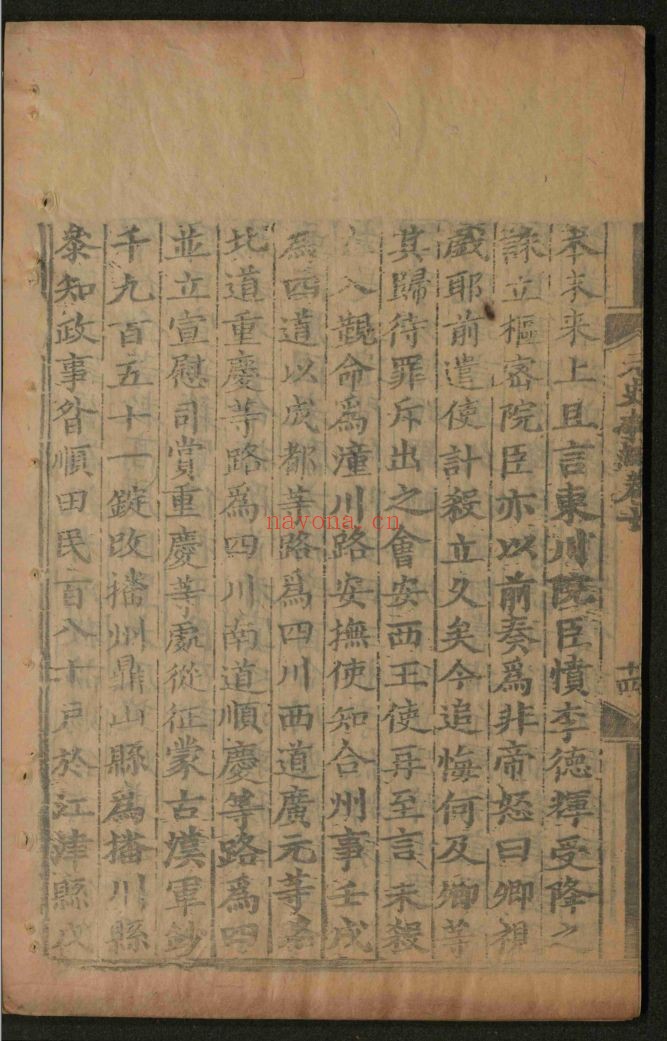 孝末來上且言東川院臣憤李德輝受降之
誅立樞密院臣亦以前奏爲非帝怒曰卿視
戲耶前遣使計殺立久矣今追悔何及卿等
其歸待罪斥出之會安西王使再至言未殺
入覲命爲潼川路安撫使知合州事壬戌
爲四道以成都等路爲四川西道廣元等路
北道重慶等路爲四川南道順慶等路爲四
並立宣慰司賞重慶等處從征蒙古漢軍鈔
千九百五十一錠改播州鼎山縣爲播川縣
叅知政事昝順田民百八十戶於江津縣
元史卷十
十四
nayona.cn